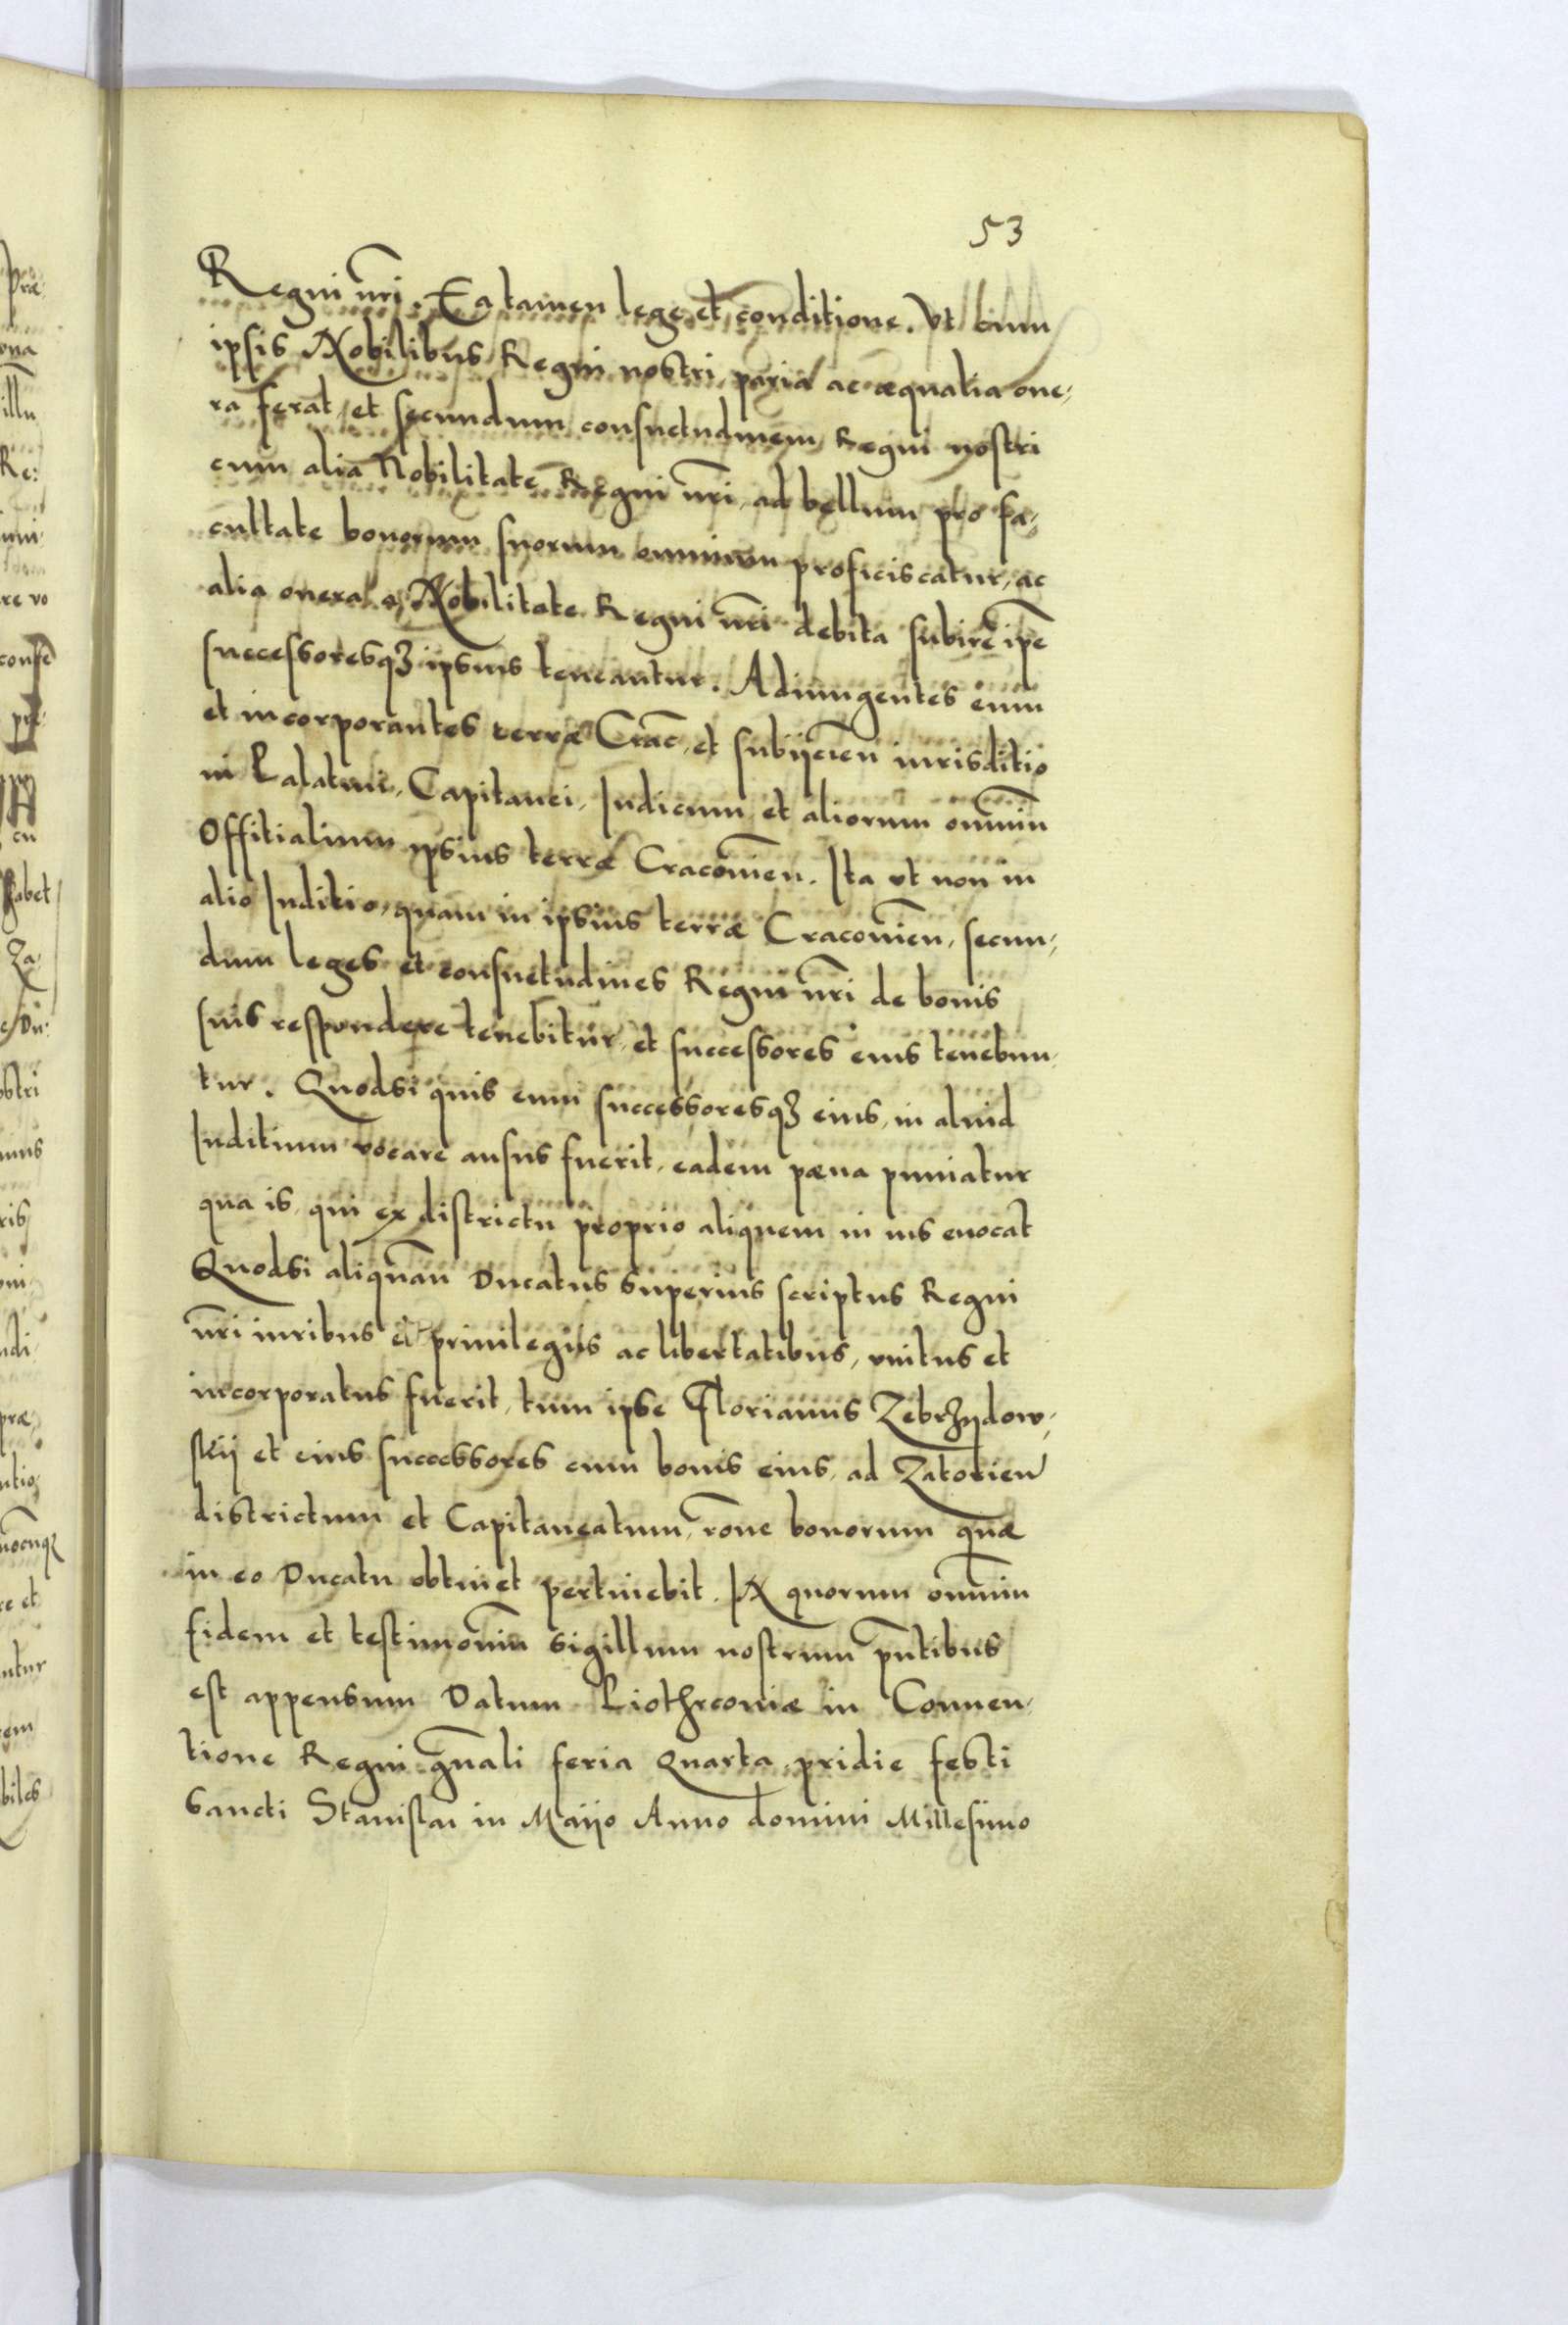 53
Regni nr̄i. Ea tamen lege et conditione. Vt cum
ipsis Nobilibus Regni nostri paria ac æqualia one,
ra ferat, et secundum consuetudinem Regni nostri
cum alia Nobilitate Regni nr̄i, ad bellum pro fa,
cultate bonorum suorum omnium proficiscatur, ac
alia onera a Nobilitate Regni nr̄i debita subire ip̄e
successoresqꝫ ipsius teneantur. Adiungentes eum
et incorporantes terræ Crac̄, et subijcien̄ iurisditio
ni Palatini, Capitanei, Iudicum et aliorum omniū
Offitialium ipsius terræ Cracouien̄. Ita vt non in
alio Iuditio, quam in ipsius terræ Cracouien̄, secun,
dum leges et consuetudines Regni nr̄i de bonis
suis respondere tenebitur, et successores eius tenebun,
tur. Quodsi quis eum successoresqꝫ eius, in aliud
Iuditium vocare ausus fuerit, eadem pæna puniatur
qua is, qui ex districtu proprio aliquem in ius euocat
Quodsi aliquan̄ Ducatus superius scriptus Regni
nr̄i iuribus et priuilegijs ac libertatibus, vnitus et
incorporatus fuerit, tum ipse Florianus Zebrzydow,
skij et eius successores cum bonis eius, ad Zatorien̄
districtum et Capitaneatum, rōne bonorum quæ
in eo Ducatu obtinet pertinebit. IN quorum omniū
fidem et testimoniū sigillum nostrum pn̄tibus
est appensum Datum Piothrcouiæ in Conuen,
tione Regni gn̄ali feria quarta, pridie festi
Sancti Stanislai in Maijo Anno domini Millesimo